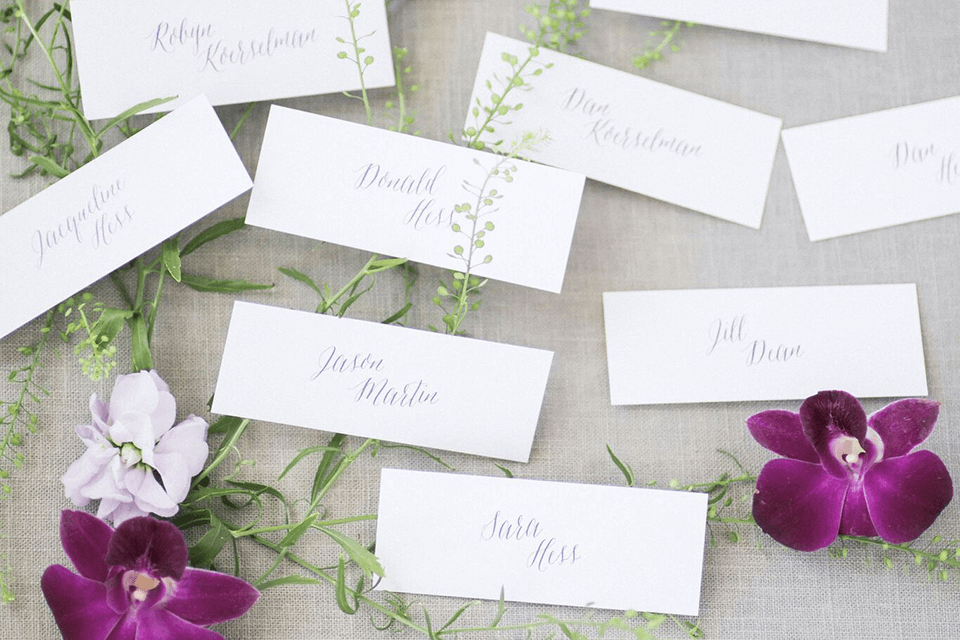 Robyn
Koerselman
Dan
Koerselman
Jacqueline
Hess
Donald
Hess
Dan
Jason
Martin
Jill
Dean
Sara
Hess